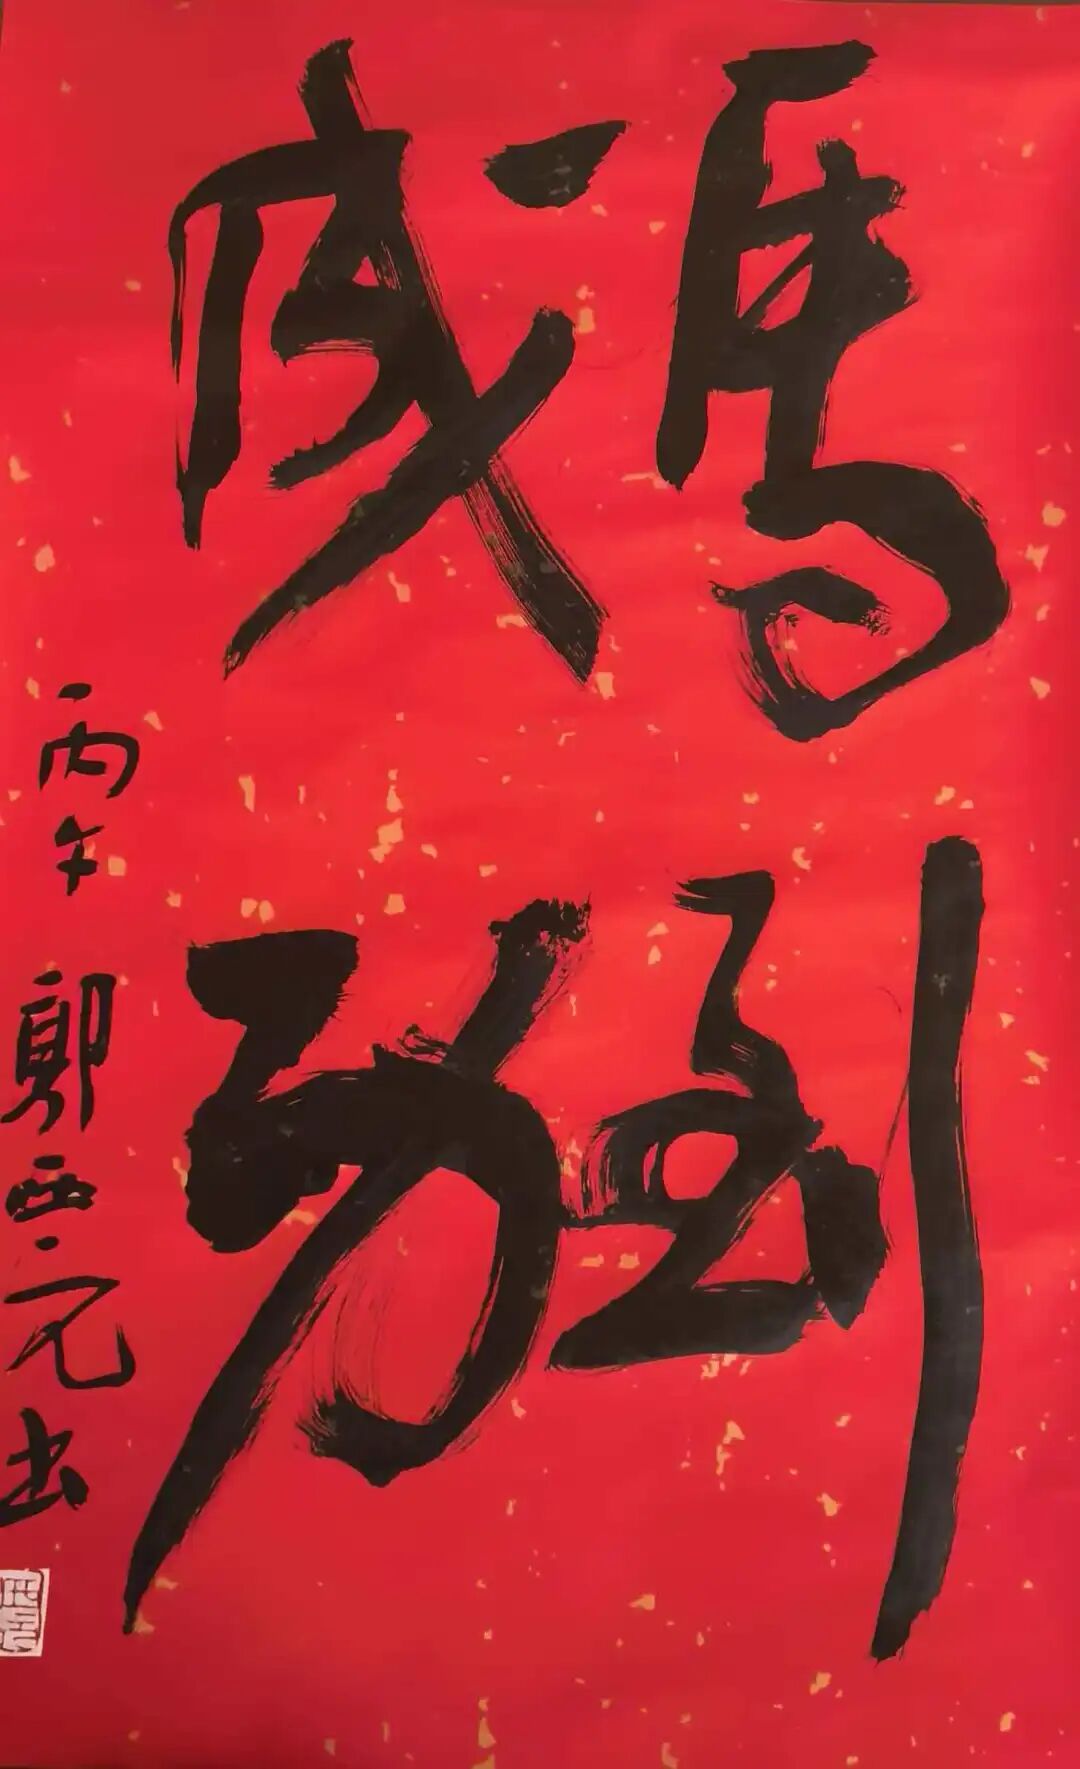 馬到
成功
丙午 郭西元书